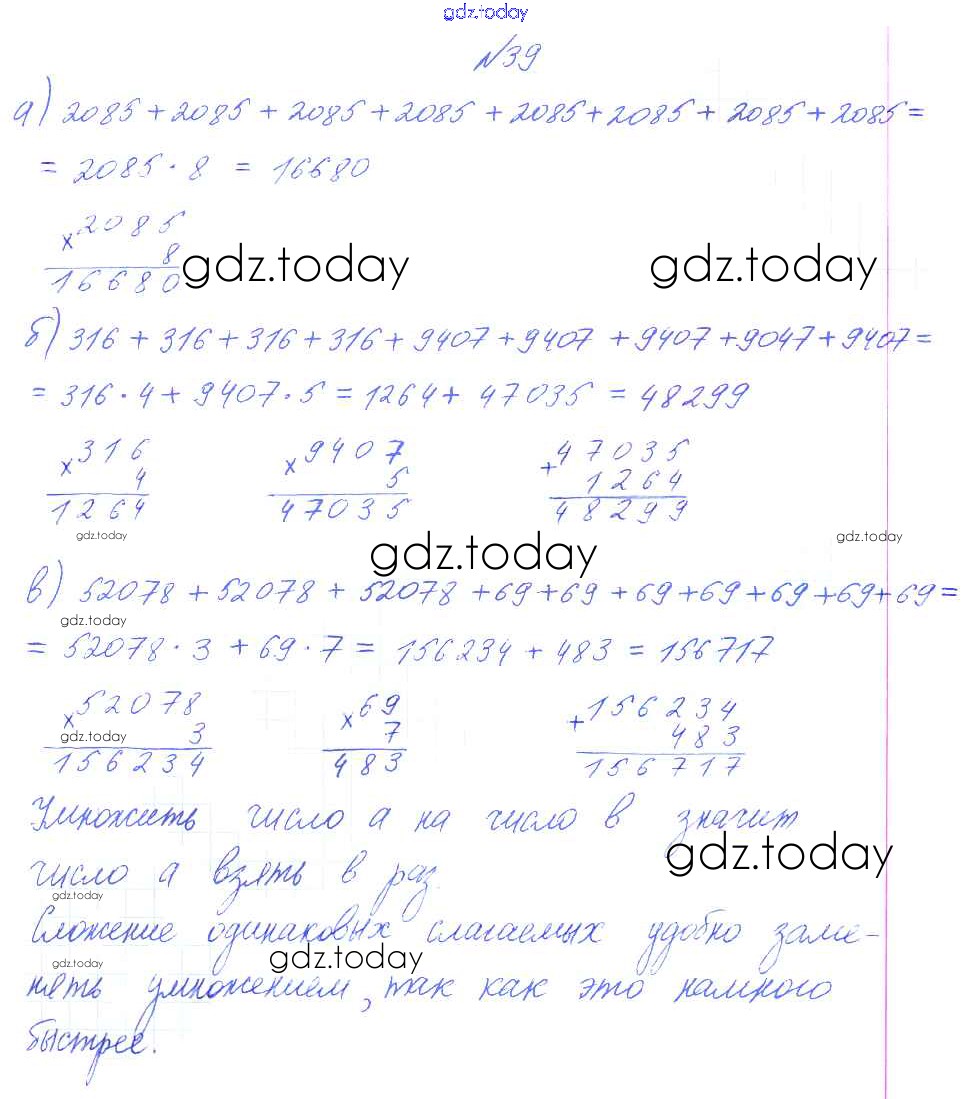 gdz.today
№39
а) 2085+2085+2085+2085+2085+2085+2085+2085=
= 2085·8 = 16680
×2085
8
16680
gdz.today gdz.today
б) 316+316+316+316+9407+9407+9407+9047+9407=
= 316·4+9407·5=1264+47035=48299
×316 ×9407 +47035
4 5 1264
1264 47035 48299
gdz.today gdz.today gdz.today
в) 52078+52078+52078+69+69+69+69+69+69+69=
gdz.today
= 52078·3+69·7=156234+483=156717
×52078 ×69 +156234
gdz.today 3 7 483
156234 483 156717
Умножить число а на число в значит
gdz.today
число а взять в раз.
gdz.today
Сложение одинаковых слагаемых удобно заме-
gdz.today gdz.today
нять умножением, так как это намного
быстрее.